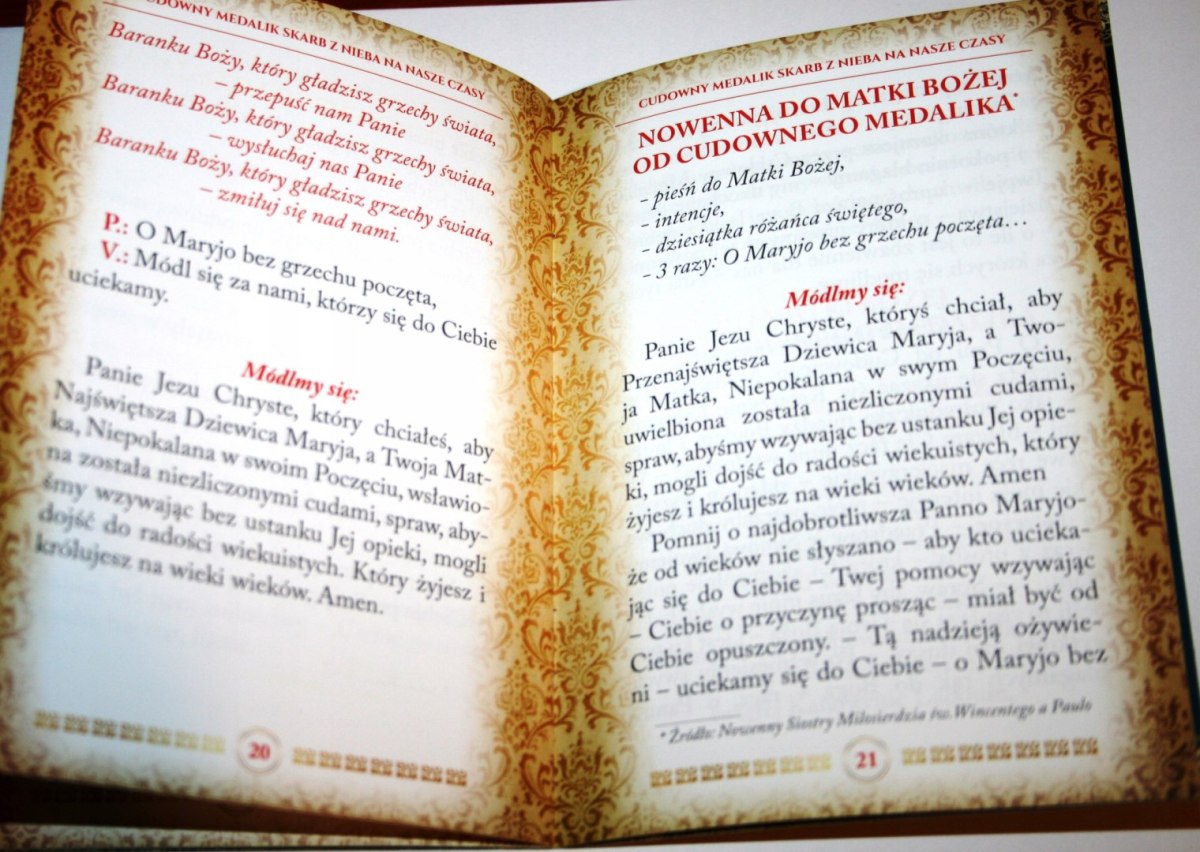 CUDOWNY MEDALIK SKARB Z NIEBA NA NASZE CZASY
Baranku Boży, który gładzisz grzechy świata,
– przepuść nam Panie
Baranku Boży, który gładzisz grzechy świata,
– wysłuchaj nas Panie
Baranku Boży, który gładzisz grzechy świata,
– zmiłuj się nad nami.
P.: O Maryjo bez grzechu poczęta,
V.: Módl się za nami, którzy się do Ciebie
uciekamy.
Módlmy się:
Panie Jezu Chryste, który chciałeś, aby
Najświętsza Dziewica Maryja, a Twoja Mat-
ka, Niepokalana w swoim Poczęciu, wsławio-
na została niezliczonymi cudami, spraw, aby-
śmy wzywając bez ustanku Jej opieki, mogli
dojść do radości wiekuistych. Który żyjesz i
królujesz na wieki wieków. Amen.
20
CUDOWNY MEDALIK SKARB Z NIEBA NA NASZE CZASY
NOWENNA DO MATKI BOŻEJ
OD CUDOWNEGO MEDALIKA*
- pieśń do Matki Bożej,
- intencje,
- dziesiątka różańca świętego,
- 3 razy: O Maryjo bez grzechu poczęta…
Módlmy się:
Panie Jezu Chryste, któryś chciał, aby
Przenajświętsza Dziewica Maryja, a Two-
ja Matka, Niepokalana w swym Poczęciu,
uwielbiona została niezliczonymi cudami,
spraw, abyśmy wzywając bez ustanku Jej opie-
ki, mogli dojść do radości wiekuistych, który
żyjesz i królujesz na wieki wieków. Amen
Pomnij o najdobrotliwsza Panno Maryjo-
że od wieków nie słyszano – aby kto ucieka-
jąc się do Ciebie – Twej pomocy wzywając
– Ciebie o przyczynę prosząc – miał być od
Ciebie opuszczony. – Tą nadzieją ożywie-
ni – uciekamy się do Ciebie – o Maryjo bez
* Źródło: Nowenny Siostry Miłosierdzia św. Wincentego a Paulo
21